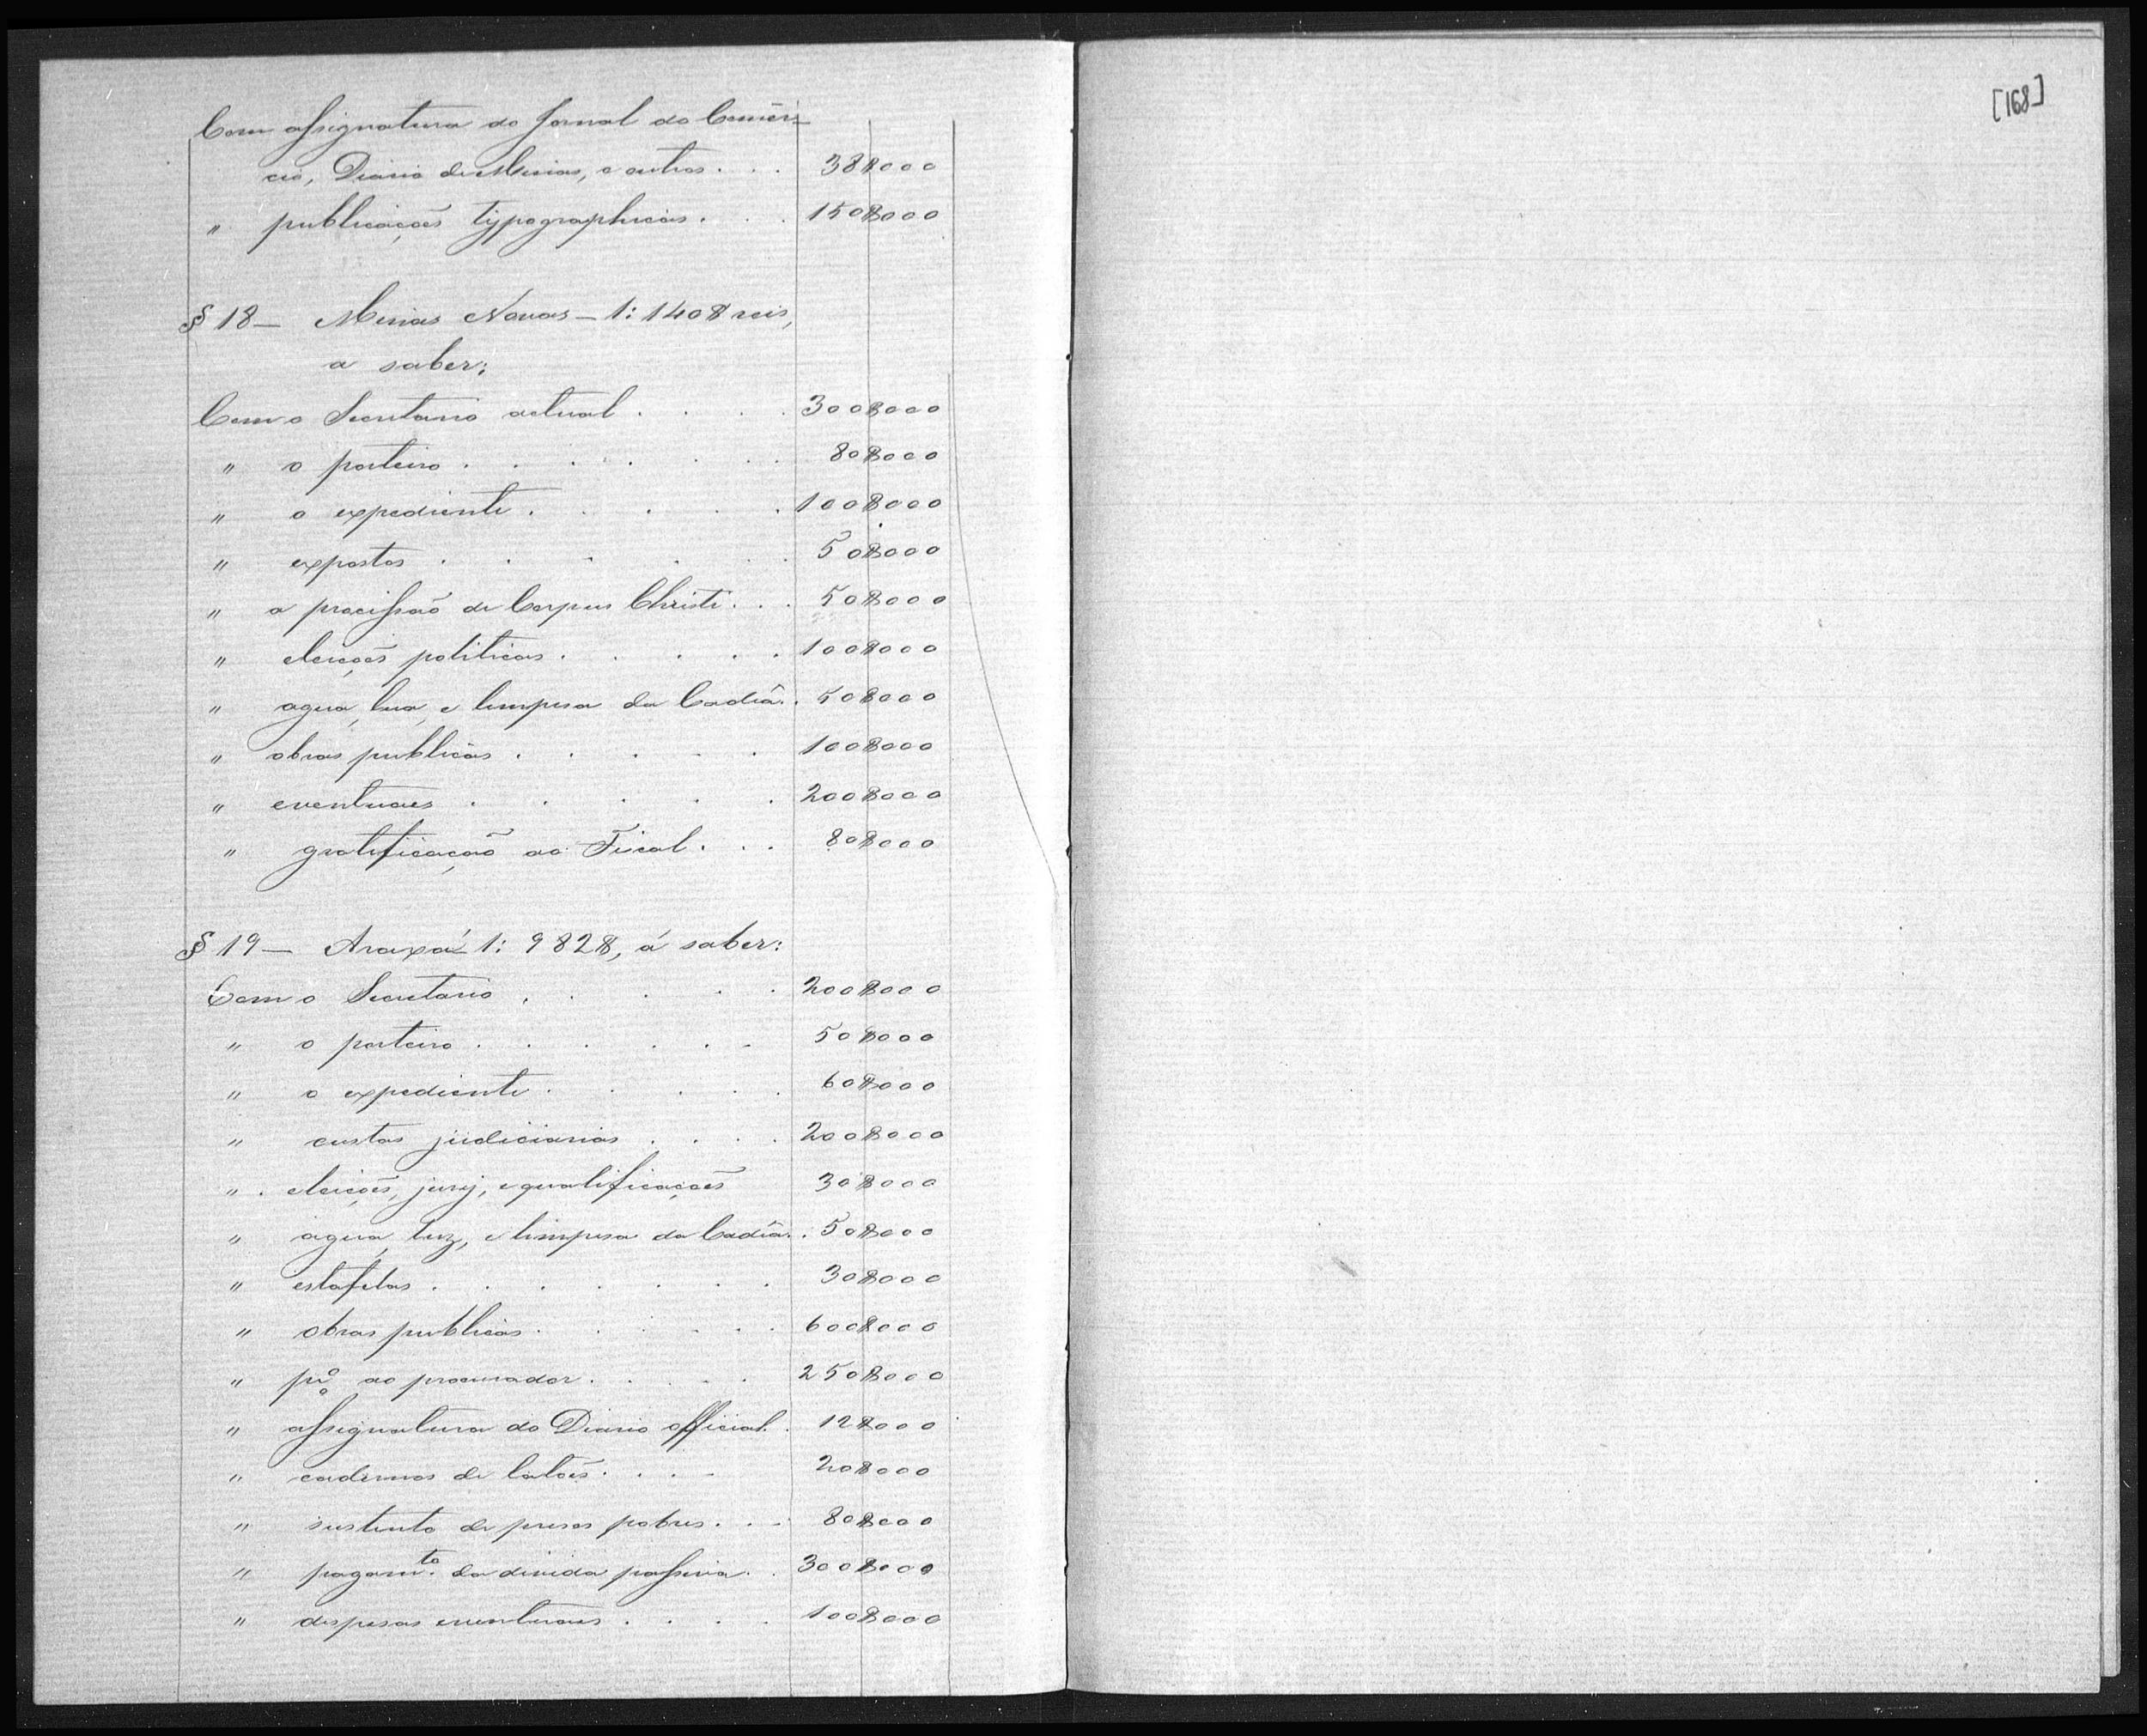 [168]
Com assignatura do Jornal do Comer-
cio, Diario de Minas, e outros . . . 38$000
" publicações typographicas . . . 150$000
§ 18 — Minas Novas — 1:140$ reis,
a saber:
Com o Secretario actual . . . . 300$000
" o porteiro . . . . . . . 80$000
" o expediente . . . . . 100$000
" expostos . . . . . . 50$000
" a procissão de Corpus Christi . . . 50$000
" eleições politicas . . . . . 100$000
" agua, lua, e limpesa da Cadeâ . . 50$000
" obras publicas . . . . . 100$000
" eventuaes . . . . . 200$000
" gratificação ao Fiscal . . . 80$000
§ 19 — Araxá 1:982$, á saber:
Com o Secretario . . . . . 200$000
" o porteiro . . . . . . 50$000
" o expediente . . . . . 60$000
" custas judiciarias . . . . 200$000
" . eleições, jury, e qualificações 30$000
" agua, luz, e limpesa da Cadêa . . 50$000
" estafetas . . . . . . . 30$000
" obras publicas . . . . . . 600$000
" ao procurador . . . . . 250$000
" assignatura do Diario official . 12$000
" cadernos de talões . . . . 20$000
" sustento de presos pobres . . . 80$000
" pagam.to da divida passiva . . 300$000
" despesas eventuaes . . . . 100$000